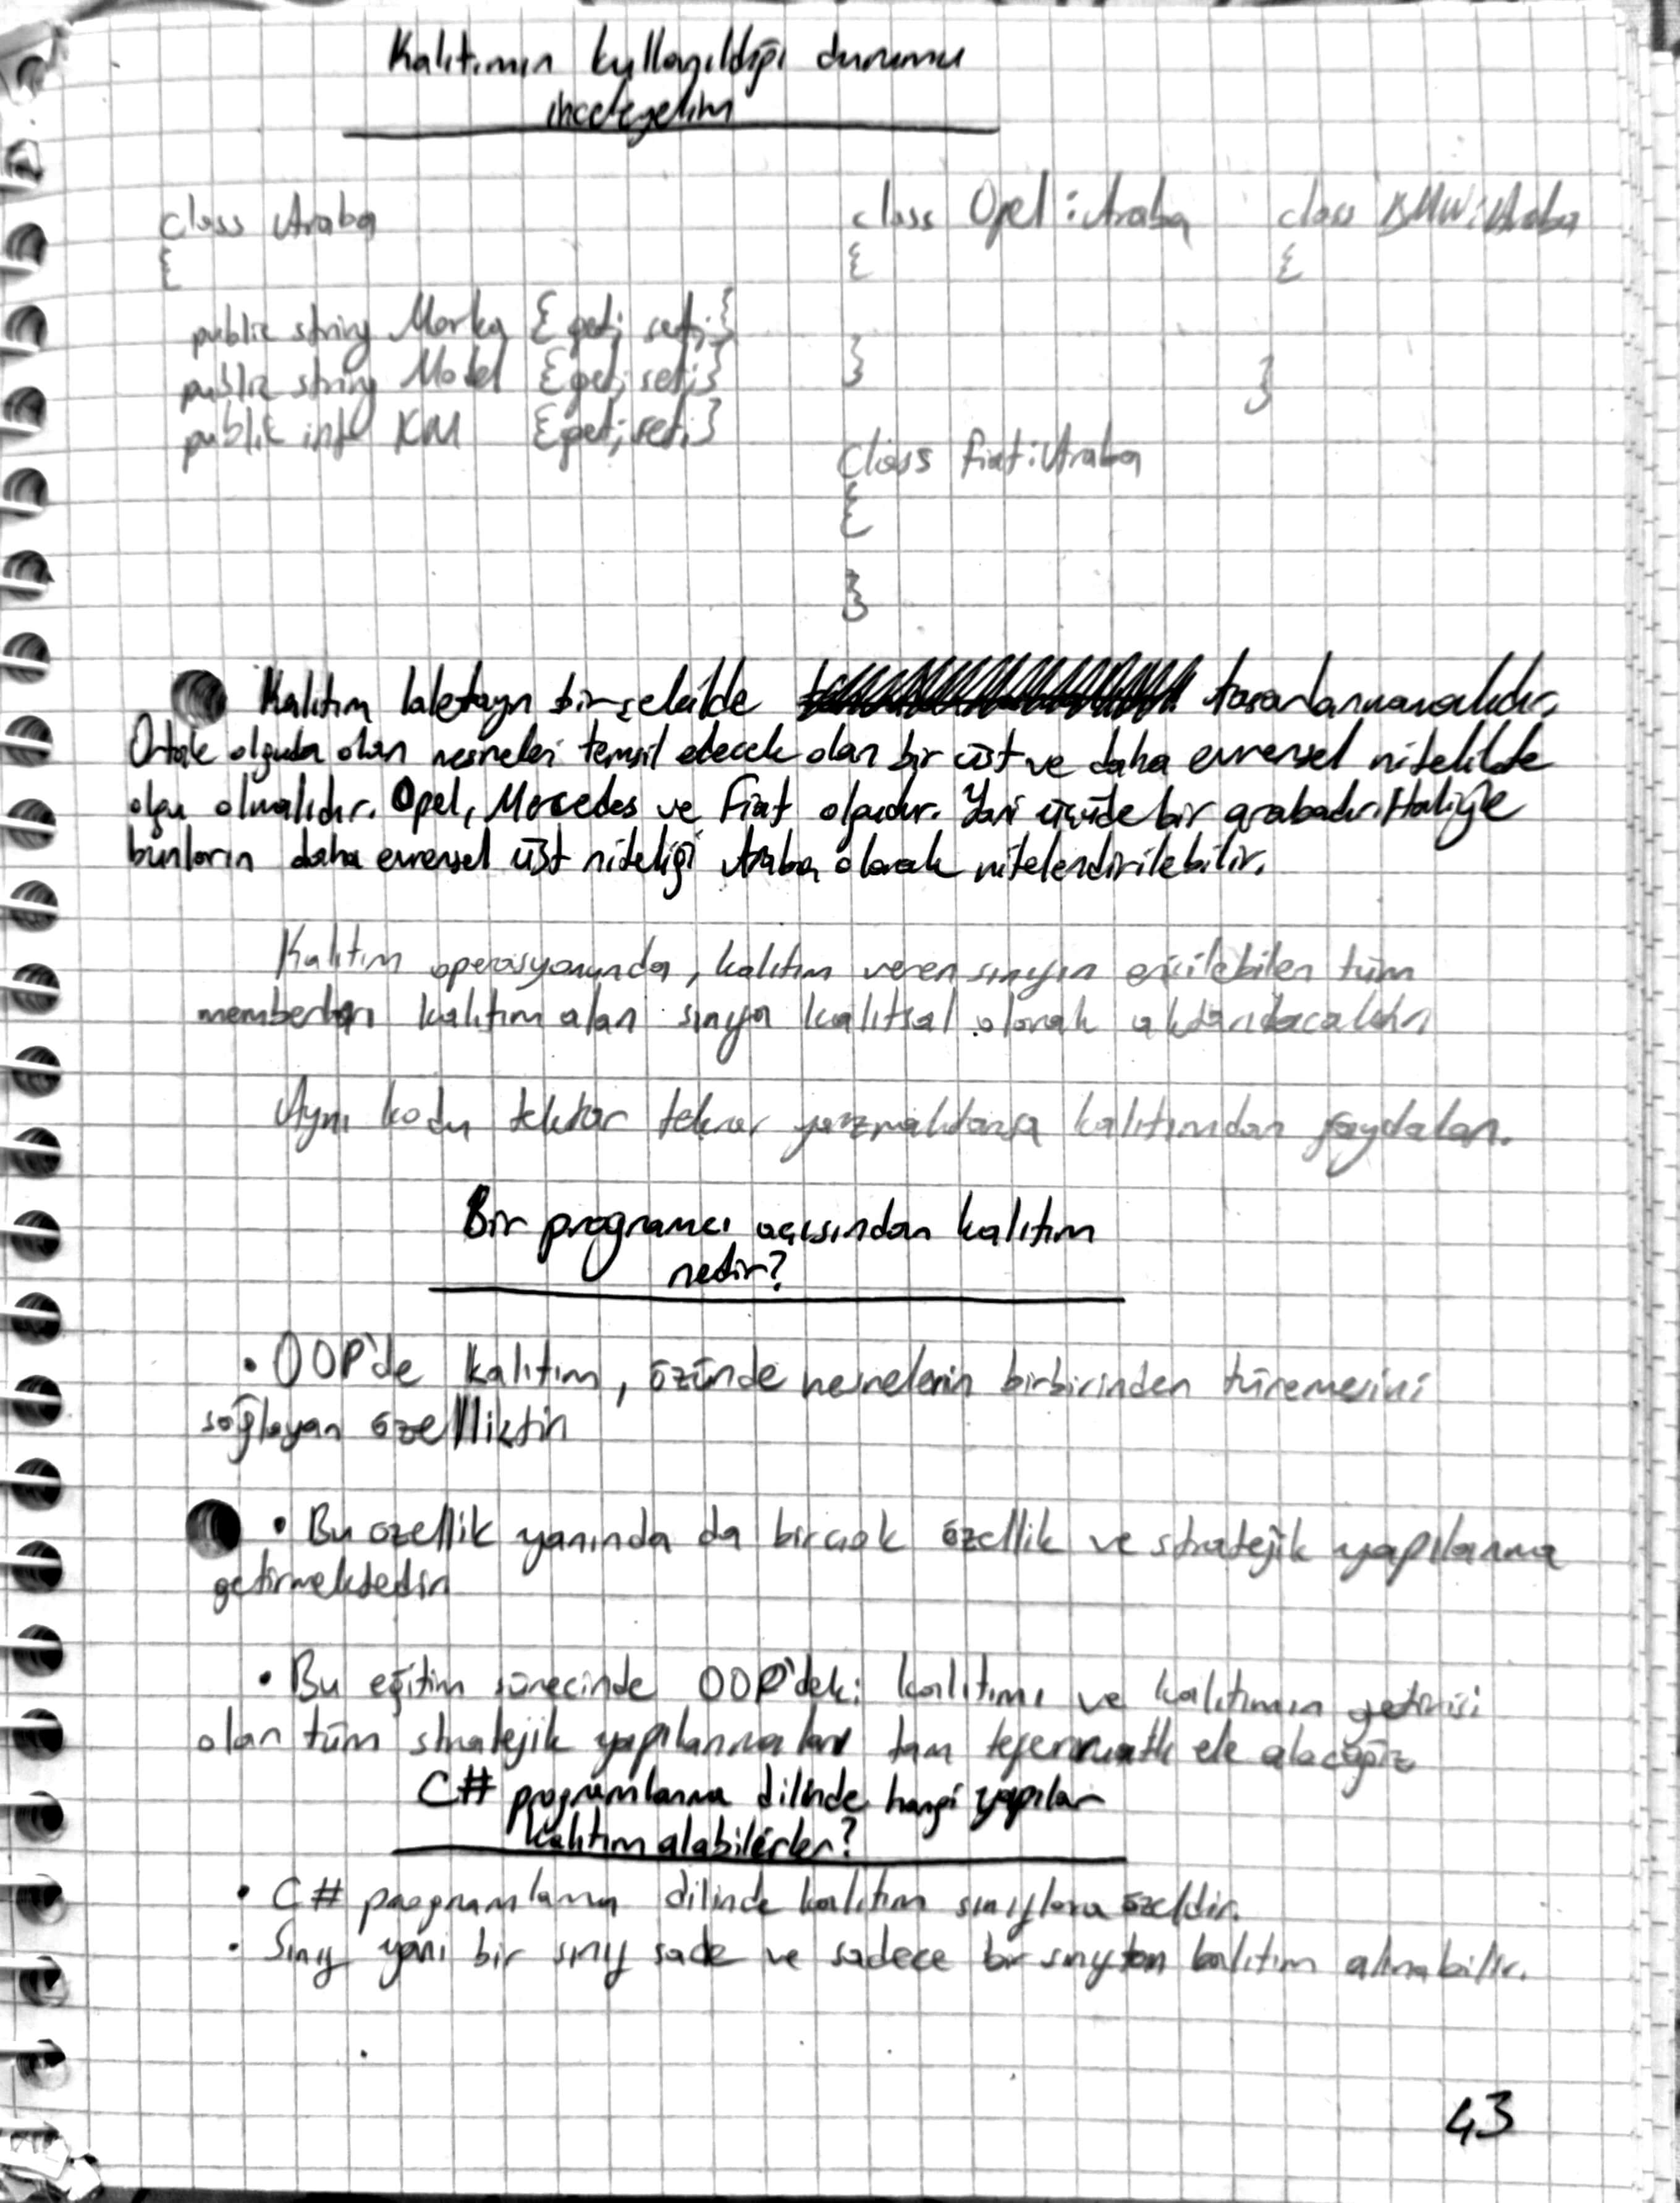 Kalıtımın kullanıldığı durumu
inceleyelim
class Araba
{
public string Marka { get; set; }
public string Model { get; set; }
public int KM { get; set; }
class Opel : Araba
{
}
class BMW : Araba
{
}
class fiat : Araba
{
}
Kalıtım laletayn bir şekilde tasarlanmamalıdır.
Ortak olguda olan nesneleri temsil edecek olan bir üst ve daha evrensel nitelikte
olgu olmalıdır. Opel, Mercedes ve Fiat olgudur. Yani üçüde bir arabadır. Haliyle
bunların daha evrensel üst niteliği Araba olarak nitelendirilebilir.
Kalıtım operasyonunda, kalıtım veren sınıfın erişilebilen tüm
memberları kalıtım alan sınıfa kalıtsal olarak aktarılacaktır
Aynı kodu tekrar tekrar yazmaktansa kalıtımdan faydalan.
Bir programcı açısından kalıtım
nedir?
• OOP'de kalıtım, özünde nesnelerin birbirinden türemesini
sağlayan özelliktir
• Bu özellik yanında da birçok özellik ve stratejik yapılanma
getirmektedir
• Bu eğitim sürecinde OOP'deki kalıtımı ve kalıtımın getirisi
olan tüm stratejik yapılanmaları tam teferruatlı ele alacağız
C# programlama dilinde hangi yapılar
kalıtım alabilirler?
• C# programlama dilinde kalıtım sınıflara özeldir.
• Sınıf yani bir sınıf sade ve sadece bir sınıftan kalıtım alınabilir.
43